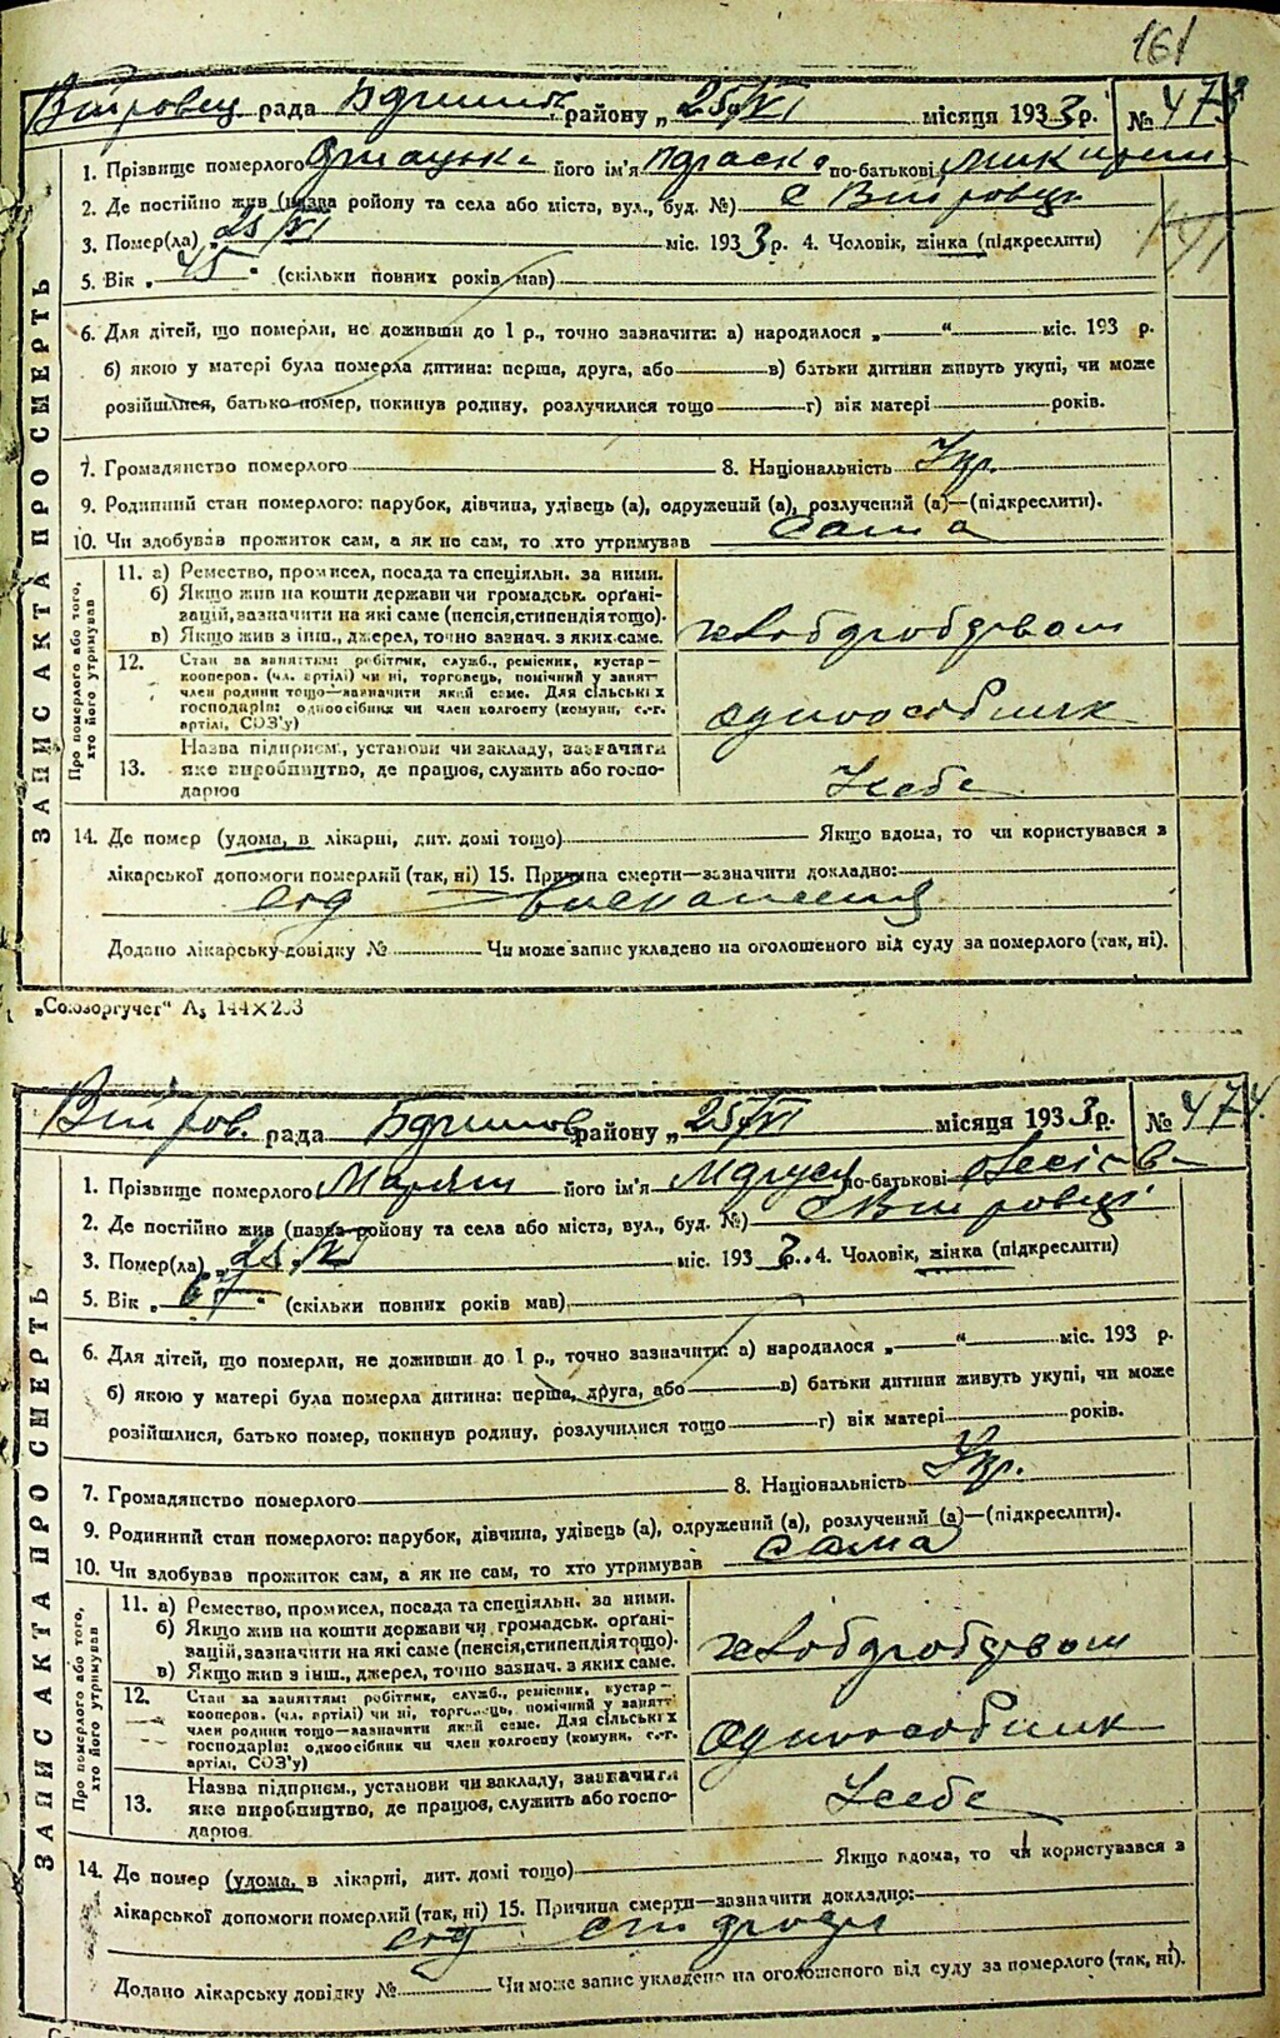 161
рада району „25/VI місяця 1933р. № 473
1. Прізвище померлого його ім'я Параска по-батькові
2. Де постійно жив (назва ройону та села або міста, вул., буд. №) с
3. Помер(ла) „25/VI міс. 1933р. 4. Чоловік, жінка (підкреслити)
5. Вік „45“ (скільки повних років мав)
6. Для дітей, що померли, не доживши до 1 р., точно зазначити: а) народилося „ “ міс. 193 р.
б) якою у матері була померла дитина: перша, друга, або в) батьки дитини живуть укупі, чи може
розійшлися, батько помер, покинув родину, розлучилися тощо г) вік матері років.
7. Громадянство померлого 8. Національність Укр.
9. Родинний стан померлого: парубок, дівчина, удівець (а), одружений (а), розлучений (а)—(підкреслити).
10. Чи здобував прожиток сам, а як не сам, то хто утримував сама
ЗАПИС АКТА ПРО СМЕРТЬ
Про померлого або того, хто його утримував
11. а) Ремество, промисел, посада та спеціяльн. за ними.
б) Якщо жив на кошти держави чи громадськ. орґані-
зацій, зазначити на які саме (пенсія, стипендія тощо).
в) Якщо жив з інш., джерел, точно зазнач. з яких саме.
хлібороб
12. Стан за заняттям: робітник, служб., ремісник, кустар—
кооперов. (чл. артілі) чи ні, торговець, помічний у занятт
член родини тощо—зазначити який саме. Для сільських
господарів: одноосібник чи член колгоспу (комуни, с.-г.
артілі, СОЗ'у)
одноосібник
13. Назва підприєм., установи чи закладу, зазначити
яке виробництво, де працює, служить або госпо-
дарює
У себе
14. Де помер (удома, в лікарні, дит. домі тощо) Якщо вдома, то чи користувався з
лікарської допомоги померлий (так, ні) 15. Причина смерти—зазначити докладно:
від виснаження
Додано лікарську довідку № Чи може запис укладено на оголошеного від суду за померлого (так, ні).
„Союзоргучет“ А₅ 144×203
рада району „25/VI місяця 1933р. № 474
1. Прізвище померлого його ім'я Маруся по-батькові
2. Де постійно жив (назва району та села або міста, вул., буд. №) с
3. Помер(ла) „25/VI міс. 1933р. 4. Чоловік, жінка (підкреслити)
5. Вік „67“ (скільки повних років мав)
6. Для дітей, що померли, не доживши до 1 р., точно зазначити: а) народилося „ “ міс. 193 р.
б) якою у матері була померла дитина: перша, друга, або в) батьки дитини живуть укупі, чи може
розійшлися, батько помер, покинув родину, розлучилися тощо г) вік матері років.
7. Громадянство померлого 8. Національність Укр.
9. Родинний стан померлого: парубок, дівчина, удівець (а), одружений (а), розлучений (а)—(підкреслити).
10. Чи здобував прожиток сам, а як не сам, то хто утримував сама
ЗАПИС АКТА ПРО СМЕРТЬ
Про померлого або того, хто його утримував
11. а) Ремество, промисел, посада та спеціяльн. за ними.
б) Якщо жив на кошти держави чи громадськ. орґані-
зацій, зазначити на які саме (пенсія, стипендія тощо).
в) Якщо жив з інш., джерел, точно зазнач. з яких саме.
12. Стан за заняттям: робітник, служб., ремісник, кустар—
кооперов. (чл. артілі) чи ні, торговець, помічний у занятт
член родини тощо—зазначити який саме. Для сільських
господарів: одноосібник чи член колгоспу (комуни, с.-г.
артілі, СОЗ'у)
одноосібник
13. Назва підприєм., установи чи закладу, зазначити
яке виробництво, де працює, служить або госпо-
дарює
У себе
14. Де помер (удома, в лікарні, дит. домі тощо) Якщо вдома, то чи користувався з
лікарської допомоги померлий (так, ні) 15. Причина смерти—зазначити докладно:
від
Додано лікарську довідку № Чи може запис укладено на оголошеного від суду за померлого (так, ні).